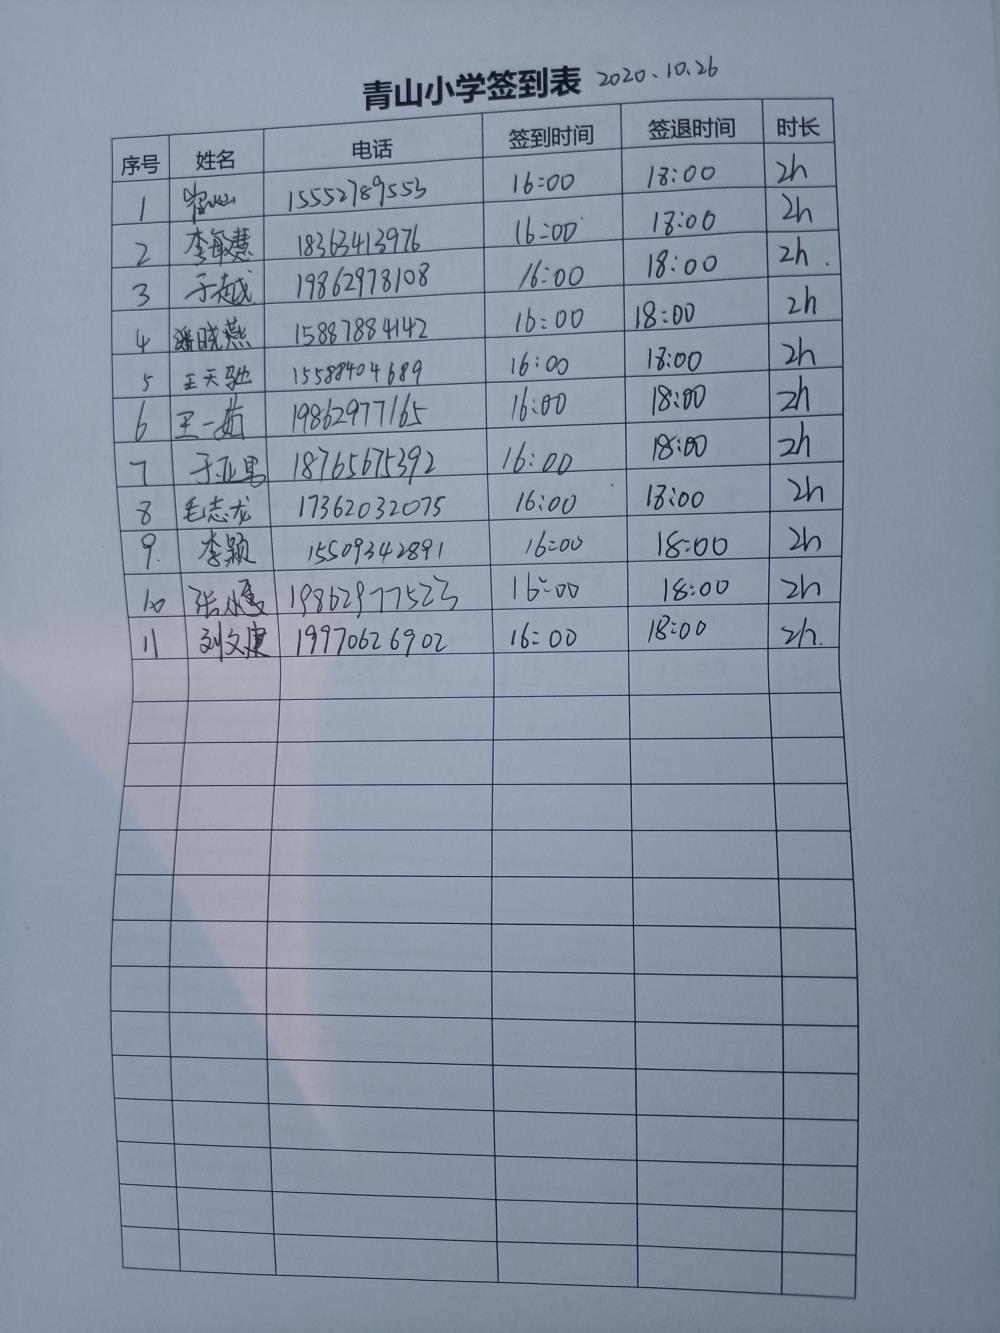 青山小学签到表 2020.10.26
序号 姓名 电话 签到时间 签退时间 时长
1 15552789553 16:00 18:00 2h
2 李敏慧 18363413976 16:00 18:00 2h
3 于越 19862978108 16:00 18:00 2h.
4 潘晓燕 15887884142 16:00 18:00 2h
5 王天驰 15588404689 16:00 18:00 2h
6 王一茹 19862977165 16:00 18:00 2h
7 于亚男 18765675392 16:00 18:00 2h
8 毛志龙 17362032075 16:00 18:00 2h
9. 李颖 15509342891 16:00 18:00 2h
10 张 19862977523 16:00 18:00 2h
11 刘文建 19970626902 16:00 18:00 2h.